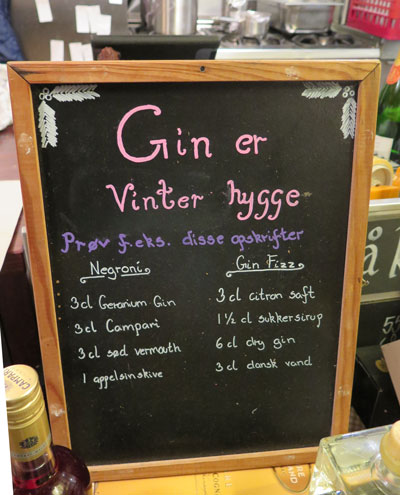 Gin er
Vinter hygge
Prøv f.eks. disse opskrifter
Negroni
3 cl Geranium Gin
3 cl Campari
3 cl sød vermouth
1 appelsinskive
Gin Fizz
3 cl citron saft
1 ½ cl sukkersirup
6 cl dry gin
3 cl dansk vand
CAMPARI